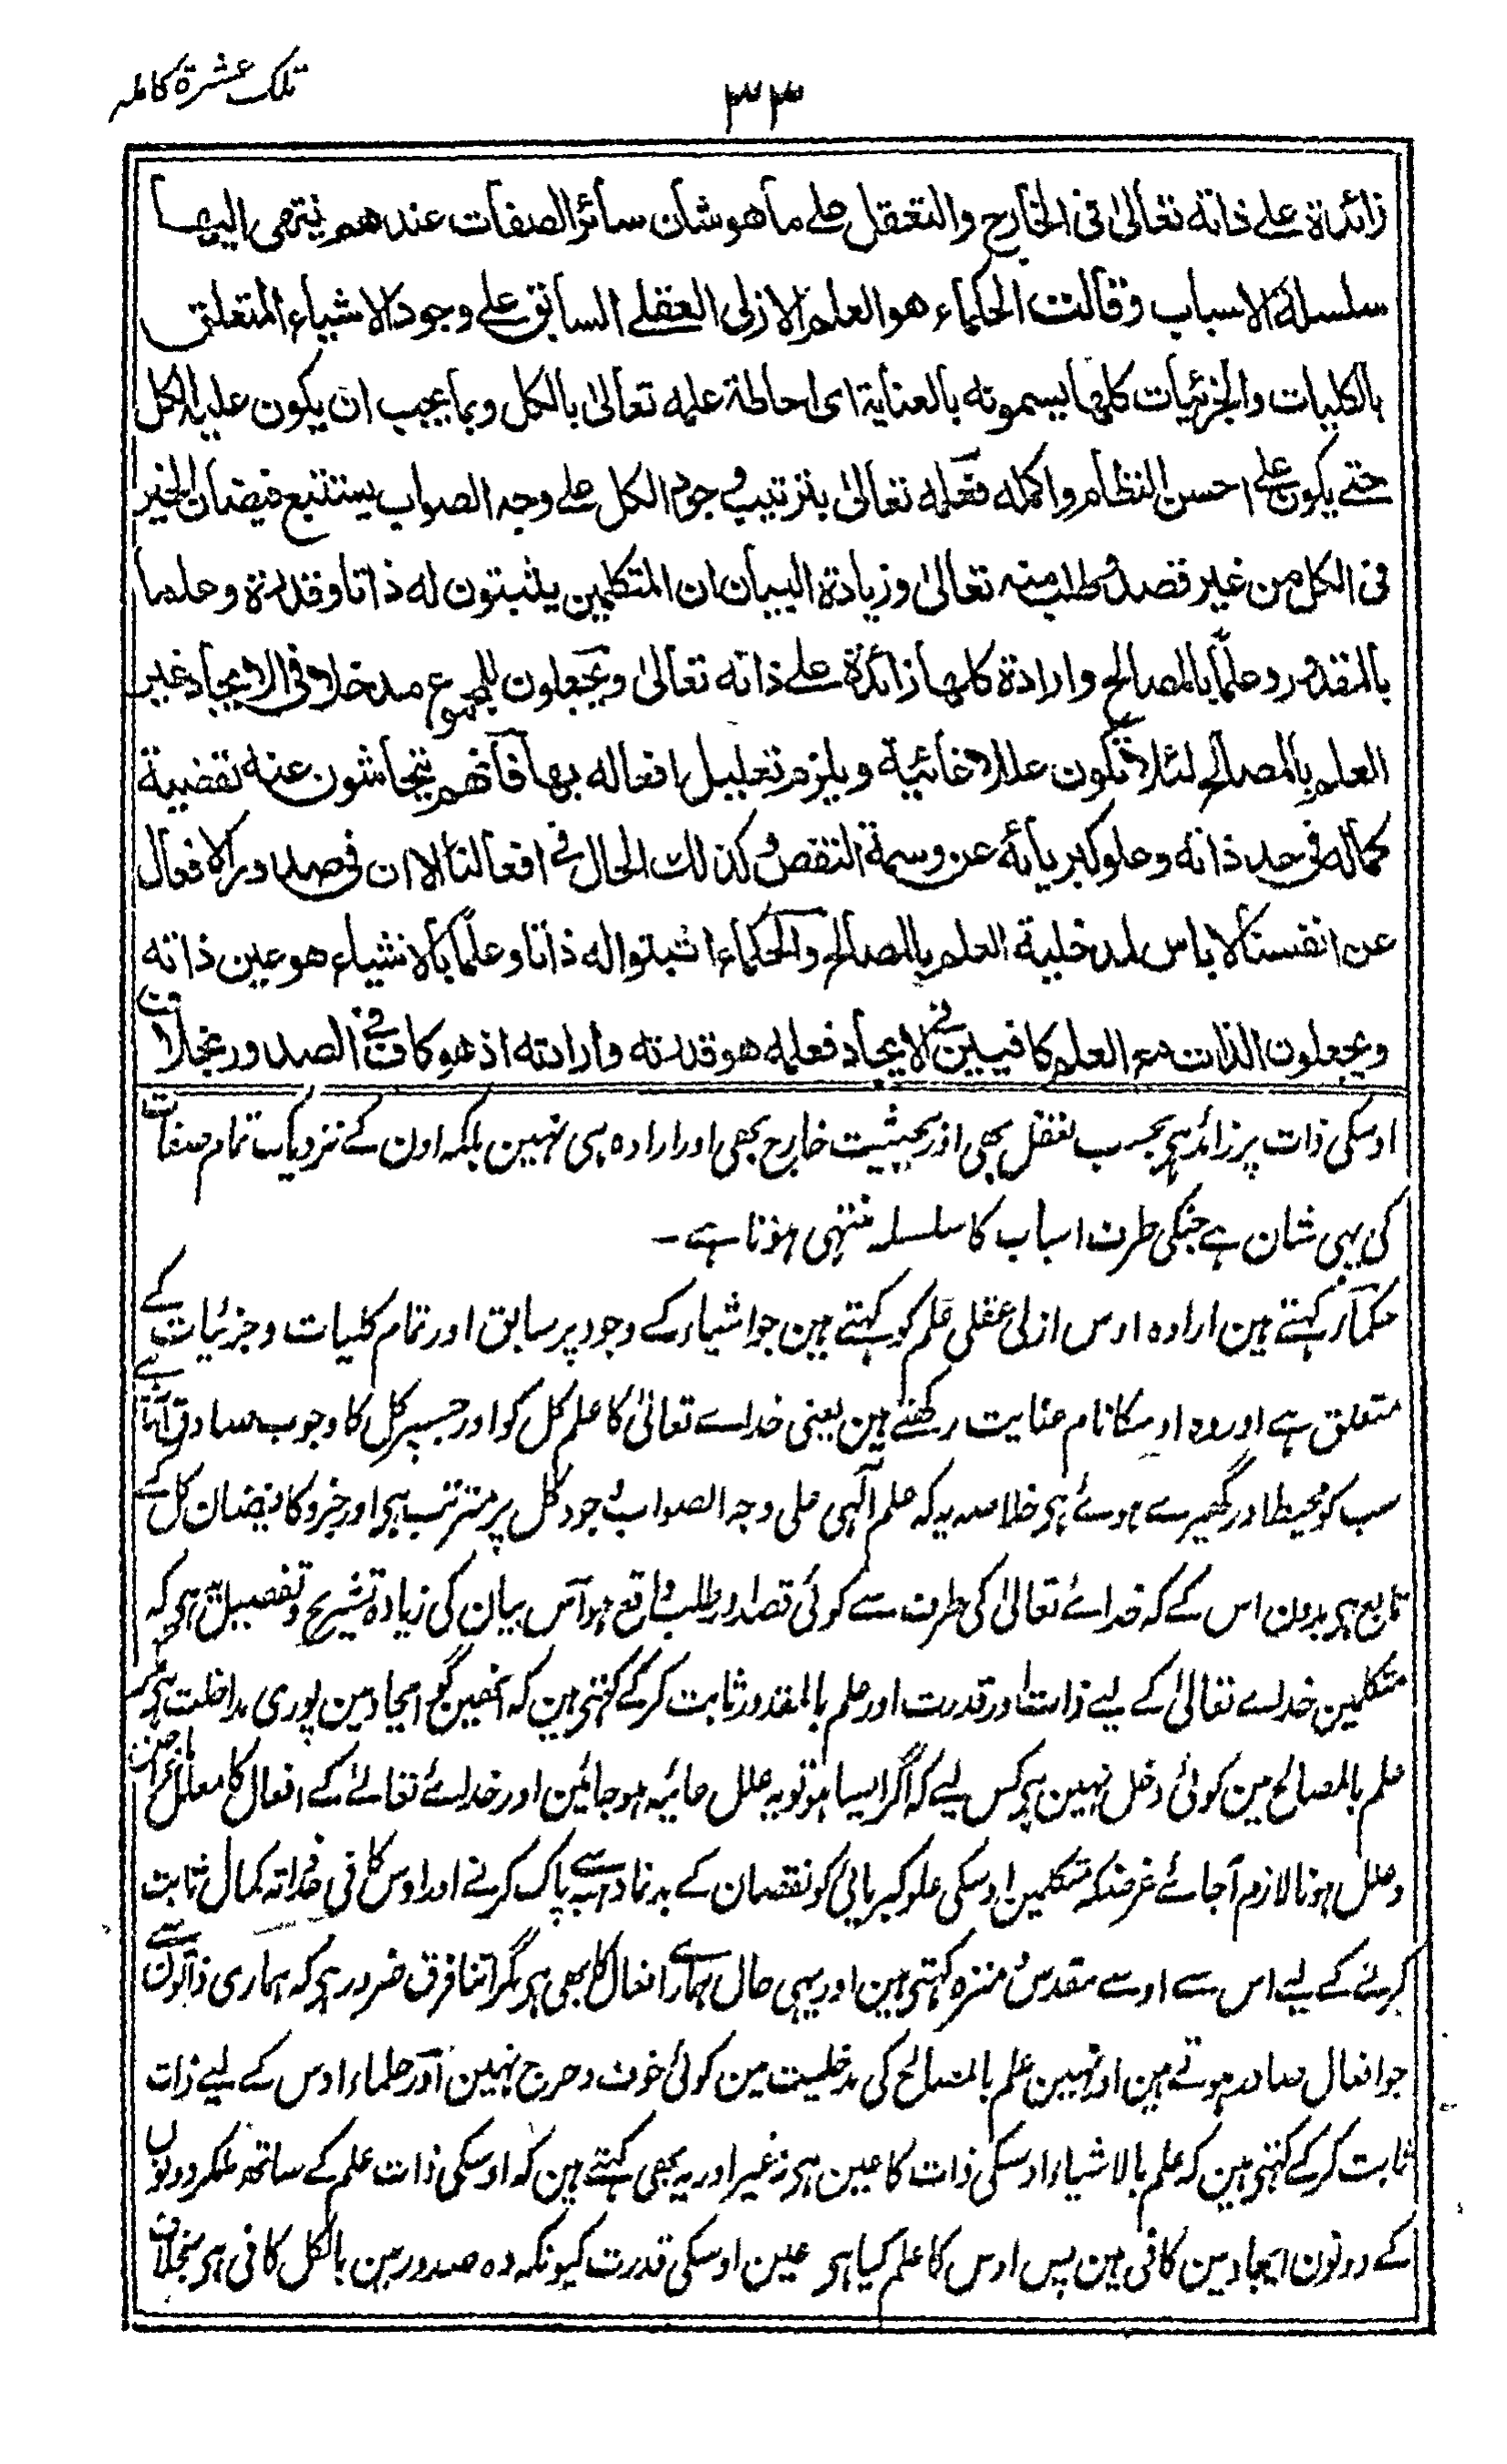 تلک عشرۃ کاملہ
۳۳
زائدۃ علے ذاتہ تعالیٰ فی الخارج والتعقل علے ما ھو شان سائر الصفات عندھم ینتھی الیھا
سلسلۃ الاسباب وقالت الحکماء ھو العلم الازلی العقلے السابق علے وجود الاشیاء المتعلق
بالکلیات والجزئیات کلھا یسمونہ بالعنایۃ ای احاطۃ علمہ تعالیٰ بالکل وبما یجب ان یکون علیہ الکل
حتے یکون علے احسن النظام واکملہ فعلمہ تعالیٰ بترتیب وجود الکل علے وجہ الصواب یستتبع فیضان الخیر
فی الکل من غیر قصد وطلب منہ تعالیٰ وزیادۃ البیان ان المتکلمین یثبتون لہ ذاتا وقدرۃ وعلما
بالمقدور وعلماً بالمصالح وارادۃ کلھا زائدۃ علے ذاتہ تعالیٰ ویجعلون للمجموع مدخلا فی الایجاد غیر
العلم بالمصالح لئلا تکون عللا غائیۃ ویلزم تعلیل افعالہ بھا فانھم یتحاشون عنہ تقضیۃ
کمالہ فی حد ذاتہ وعلو کبریائہ عن وسمۃ النقص وکذلک الحال فے افعالنا الا ان فی صدور الافعال
عن انفسنا لا باس لمدخلیۃ العلم بالمصالح والحکماء اثبتوا لہ ذاتا وعلماً بالاشیاء ھو عین ذاتہ
ویجعلون الذات مع العلم کافیین فے الایجاد فعلمہ ھو قدرتہ وارادتہ اذ ھو کاف فے الصدور بخلاف
اوسکی ذات پر زائد ہے بحسب تعقل بھی اور بحیثیت خارج بھی اور ارادہ ہی نہین بلکہ اون کے نزدیک تمام صفات
کی یہی شان ہے جنکی طرف اسباب کا سلسلہ منتہی ہوتا ہے ۔
حکماء کہتے ہین ارادہ اوس ازلی عقلی علم کو کہتے ہین جو اشیاء کے وجود پر سابق اور تمام کلیات و جزئیات کے
متعلق ہے اور وہ اوسکا نام عنایت رکھتے ہین یعنی خدائے تعالیٰ کا علم کل کو اور جسپر کل کا وجوب صادق آتا ہے
سب کو محیط اور گھیرے ہوئے ہے خلاصہ یہ کہ علم آلہی علی وجہ الصواب وجود کل پر مترتب ہے اور خیر کا فیضان کل کے
تابع ہے بدون اس کے کہ خدائے تعالیٰ کی طرف سے کوئی قصد اور طلب واقع ہو اس بیان کی زیادہ تشریح و تفصیل یہ ہے کہ
متکلمین خدائے تعالیٰ کے لیے ذات اور قدرت اور علم بالمقدور ثابت کر کے کہتے ہین کہ انھین گو ایجاد مین پوری مداخلت ہے مگر
علم بالمصالح مین کوئی دخل نہین ہے کس لیے کہ اگر ایسا ہو تو یہ علل غائیہ ہو جائین اور خدائے تعالےٰ کے افعال کا معلل باغراض
و علل ہونا لازم آجائے غرضکہ متکلمین اوسکی علو کبریائی کو نقصان کے بدنما دھبہ سے پاک کرنے اور اوس کا فی حد ذاتہ کمال ثابت
کرنے کے لیے اس سے اوسے مقدس و منزہ کہتے ہین اور یہی حال ہمارے افعال کا بھی ہے مگر اتنا فرق ضرور ہے کہ ہماری ذاتون سے
جو افعال صادر ہوتے ہین اونہین علم بالمصالح کی مدخلیت مین کوئی خوف و حرج نہین اور حکماء اوس کے لیے ذات
ثابت کر کے کہتے ہین کہ علم بالاشیاء اوسکی ذات کا عین ہے نہ غیر اور یہ بھی کہتے ہین کہ اوسکی ذات علم کے ساتھ ملکر دونون
کے دونون ایجاد مین کافی ہین پس اوس کا علم کیا ہے عین اوسکی قدرت کیونکہ وہ صدور مین بالکل کافی ہے بخلاف